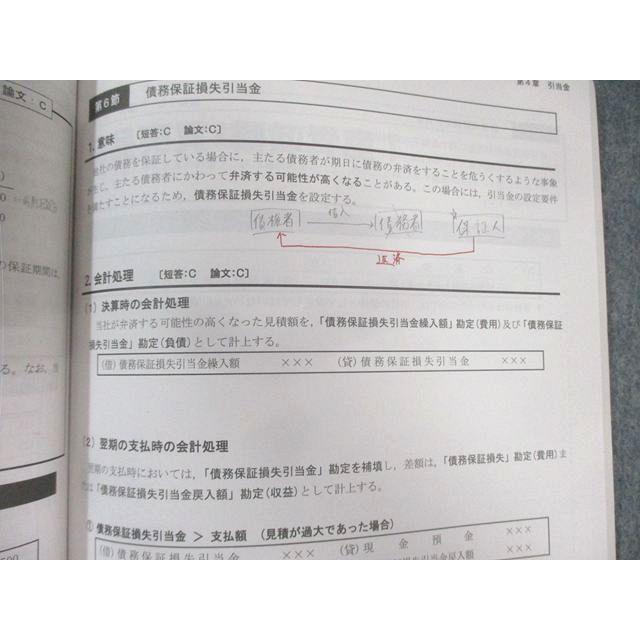 論文：C
第4章 引当金
第6節 債務保証損失引当金
1. 意味 〔短答：C 論文：C〕
会社の債務を保証している場合に，主たる債務者が期日に債務の弁済をすることを危うくするような事象
が生じ，主たる債務者にかわって弁済する可能性が高くなることがある。この場合には，引当金の設定要件
を満たすことになるため，債務保証損失引当金を設定する。
債権者 借入 債務者 保証人
返済
2. 会計処理 〔短答：C 論文：C〕
(1) 決算時の会計処理
当社が弁済する可能性の高くなった見積額を，「債務保証損失引当金繰入額」勘定（費用）及び「債務保証
損失引当金」勘定（負債）として計上する。
(借) 債務保証損失引当金繰入額 ××× (貸) 債務保証損失引当金 ×××
(2) 翌期の支払時の会計処理
翌期の支払時においては，「債務保証損失引当金」勘定を補填し，差額は，「債務保証損失」勘定（費用）ま
たは「債務保証損失引当金戻入額」勘定（収益）として計上する。
① 債務保証損失引当金 ＞ 支払額 （見積が過大であった場合）
(借) 債務保証損失引当金 ××× (貸) 現金預金 ×××
引当金戻入額 ×××
の保証期間は，
る。なお，当